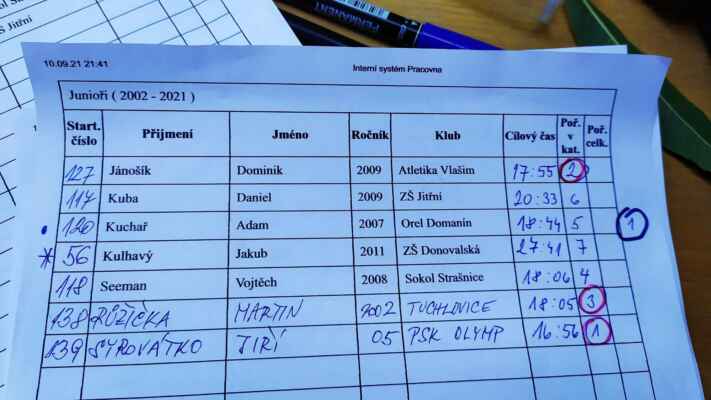 ZŠ Jitřní
PERMANENT
10.09.21 21:41 Interní systém Pracovna
Junioři ( 2002 - 2021 )
Start. číslo Příjmení Jméno Ročník Klub Cílový čas Poř. v kat. Poř. celk.
127 Jánošík Dominik 2009 Atletika Vlašim 17:55 2
117 Kuba Daniel 2009 ZŠ Jitřní 20:33 6
120 Kuchař Adam 2007 Orel Domanín 18:44 5 1
* 56 Kulhavý Jakub 2011 ZŠ Donovalská 27:41 7
118 Seeman Vojtěch 2008 Sokol Strašnice 18:06 4
138 RŮŽIČKA MARTIN 2002 TUCHLOVICE 18:05 3
139 SYROVÁTKO JIŘÍ 05 PSK OLYMP 16:56 1